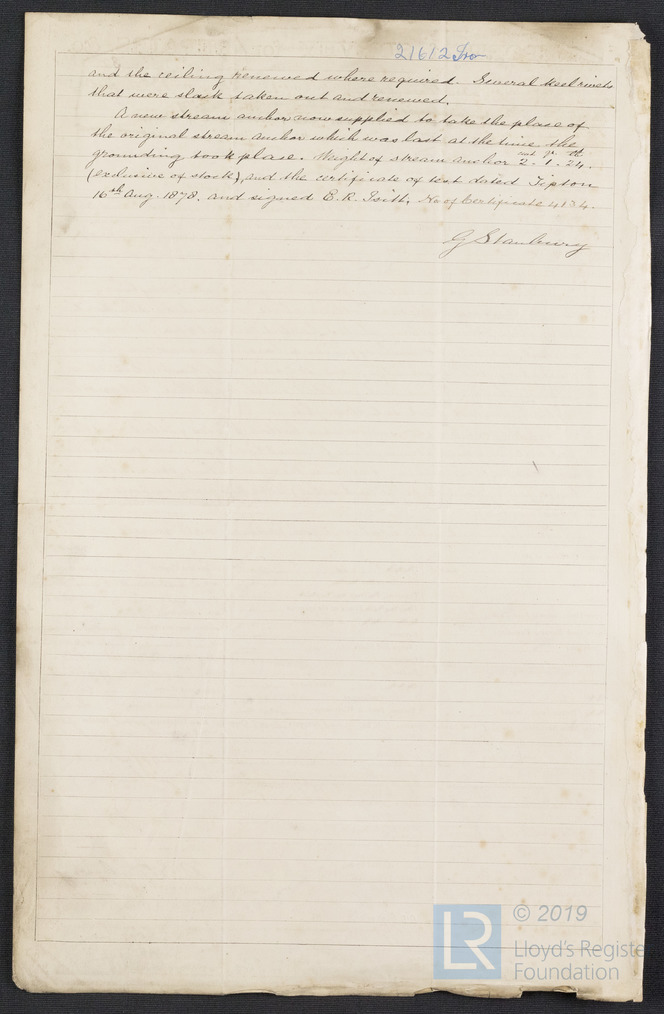 21612 Iro
and the ceiling renewed where required. Several keel rivets
that were slack taken out and renewed.
A new stream anchor now supplied to take the place of
the original stream anchor which was lost at the time the
grounding took place. Weight of stream anchor 2 - 1 - 24.
(exclusive of stock), and the certificate of test dated Tipton
16th Aug. 1878, and signed E. R. No of Certificate 4134.
G Stanbury
© 2019
LR
Lloyd's Registe
Foundation